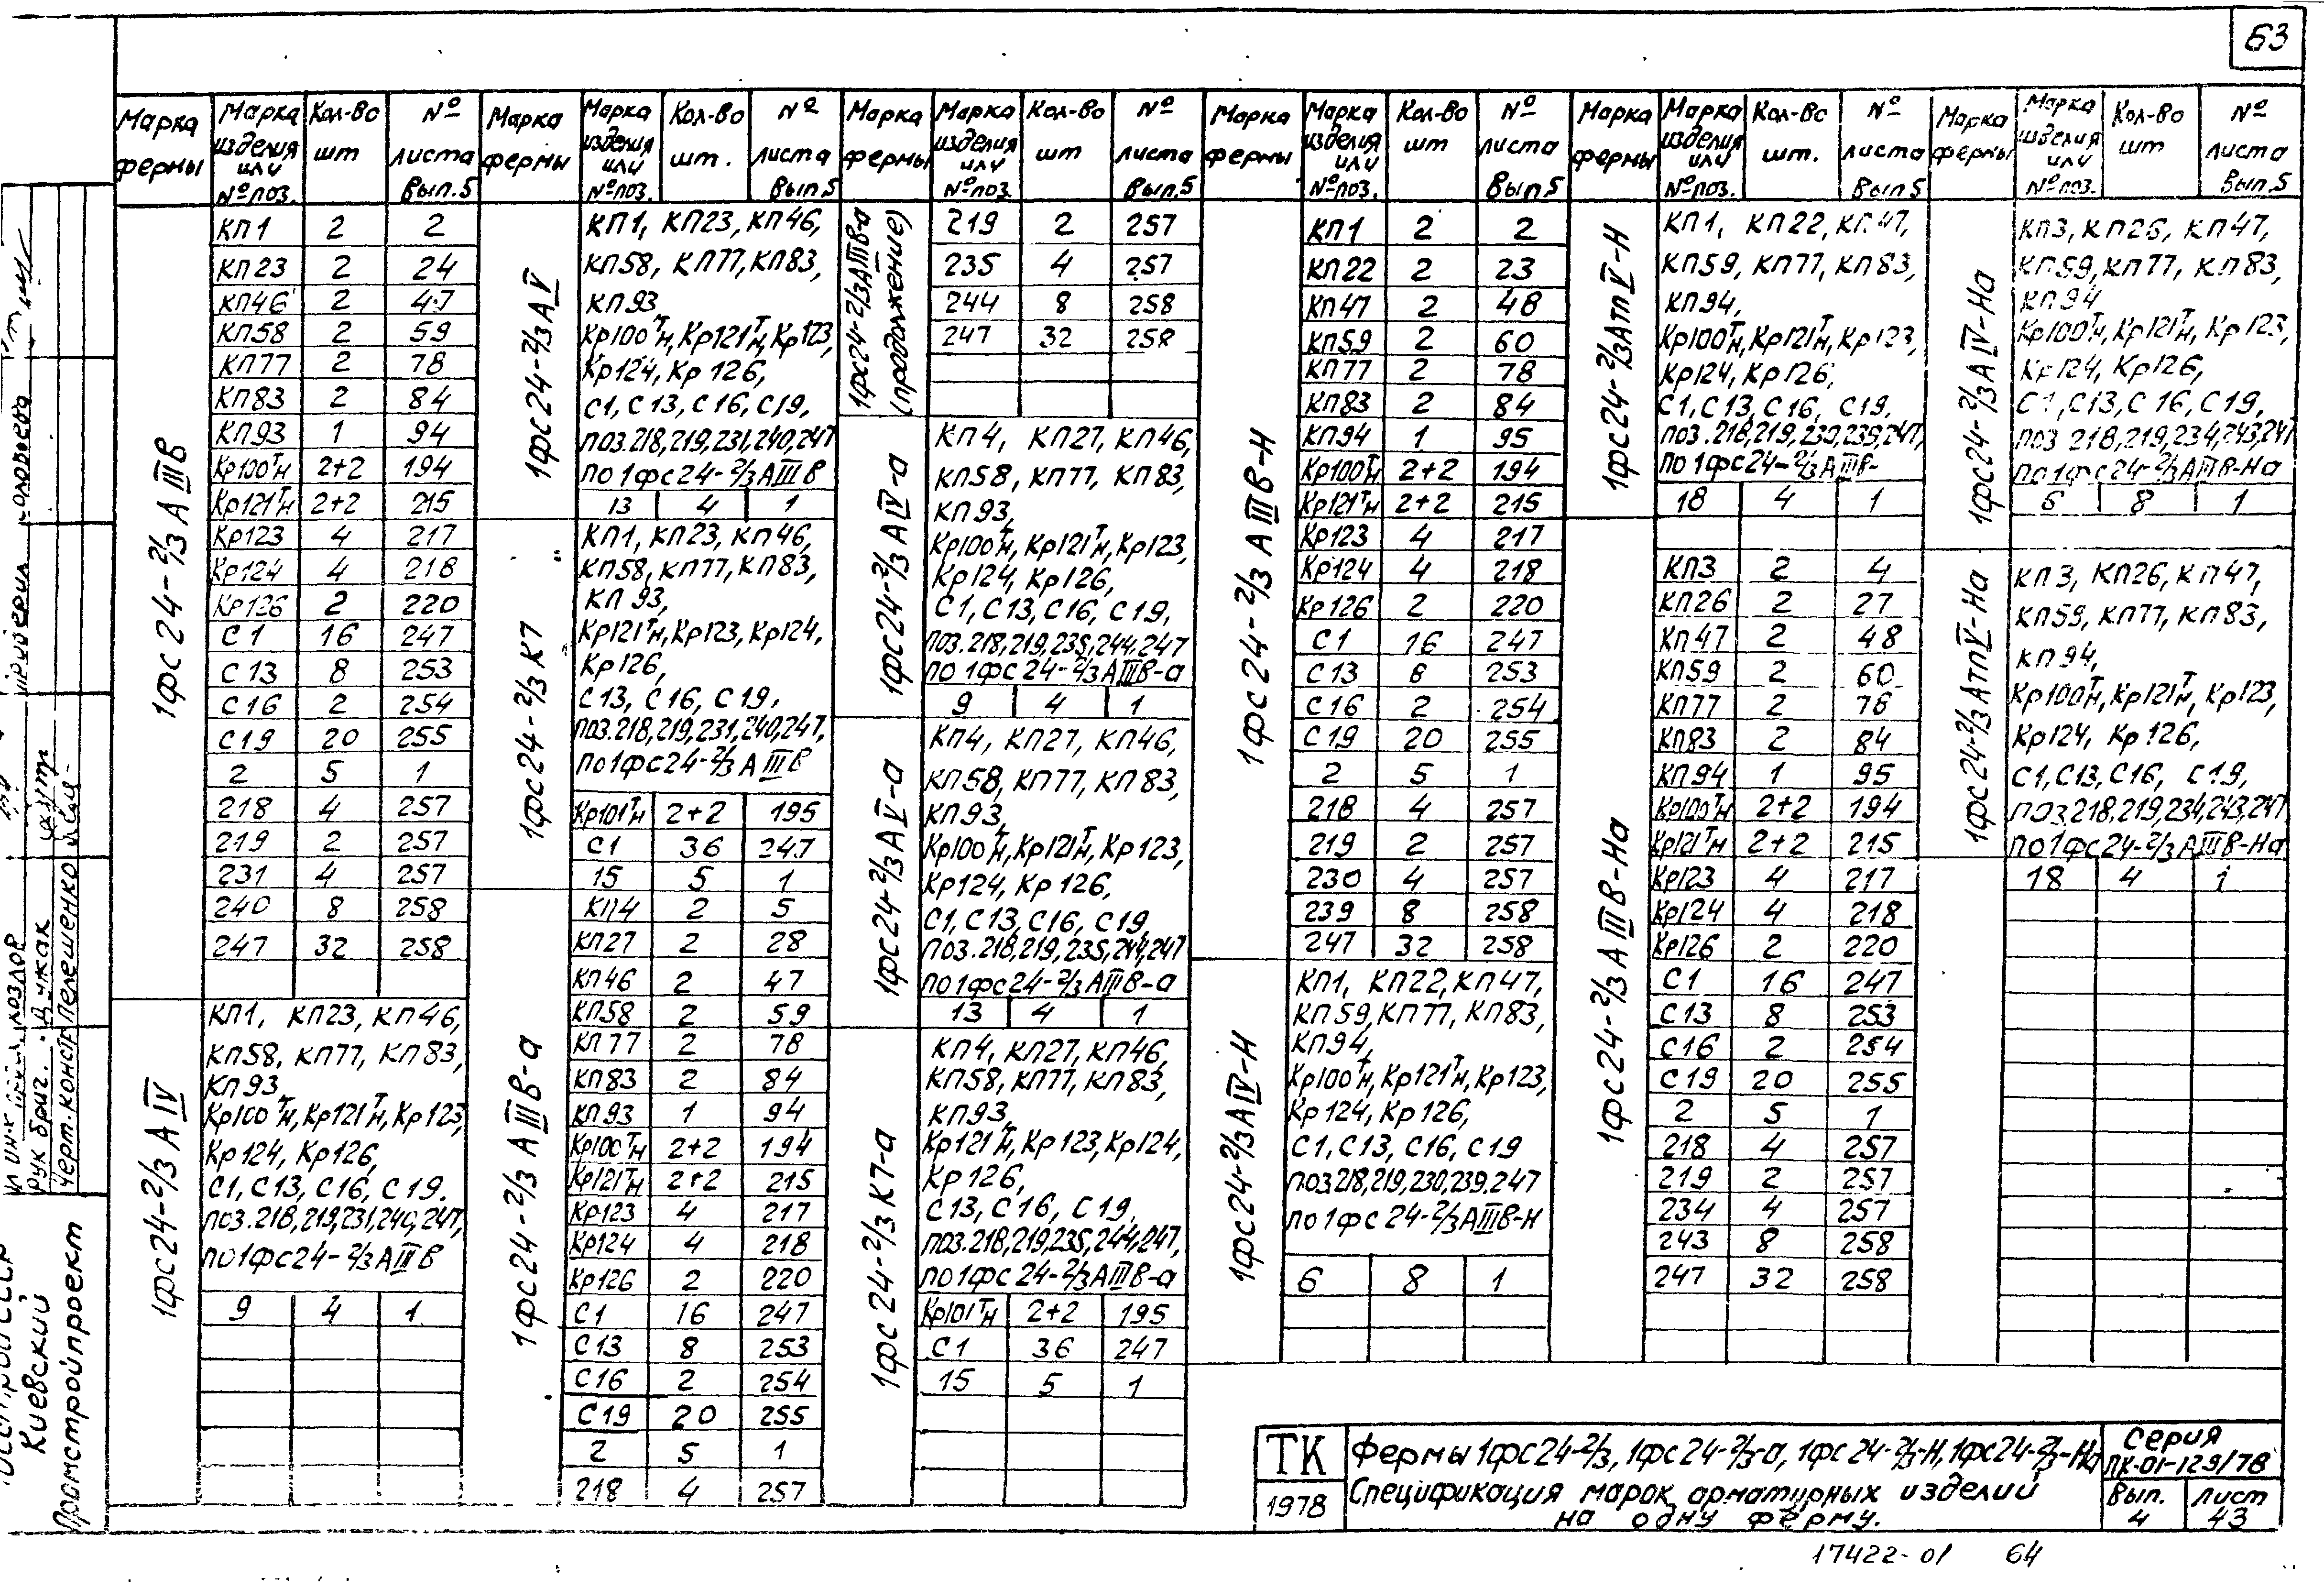 63
Марка фермы | Марка изделия или № поз. | Кол-во шт | № листа Вып.5
1фс24-2/3АIIIв
КП1 2 2
КП23 2 24
КП46 2 47
КП58 2 59
КП77 2 78
КП83 2 84
КП93 1 94
Кр100Тн 2+2 194
Кр121Тн 2+2 215
Кр123 4 217
Кр124 4 218
Кр126 2 220
С1 16 247
С13 8 253
С16 2 254
С19 20 255
2 5 1
218 4 257
219 2 257
231 4 257
240 8 258
247 32 258
1фс24-2/3АIV
КП1, КП23, КП46,
КП58, КП77, КП83,
КП93,
Кр100Тн, Кр121Тн, Кр123,
Кр124, Кр126,
С1, С13, С16, С19.
поз.218,219,231,240,247,
по 1фс24-2/3АIIIв
9 4 1
Марка фермы | Марка изделия или № поз. | Кол-во шт. | № листа Вып.5
1фс24-2/3АV
КП1, КП23, КП46,
КП58, КП77, КП83,
КП93
Кр100Тн, Кр121Тн, Кр123,
Кр124, Кр126,
С1, С13, С16, С19,
поз.218,219,231,240,247
по 1фс24-2/3АIIIв
13 4 1
1фс24-2/3К7
КП1, КП23, КП46,
КП58, КП77, КП83,
КП93,
Кр121Тн, Кр123, Кр124,
Кр126,
С13, С16, С19,
поз.218,219,231,240,247,
по 1фс24-2/3АIIIв
Кр101Тн 2+2 195
С1 36 247
15 5 1
1фс24-2/3АIIIв-а
КП4 2 5
КП27 2 28
КП46 2 47
КП58 2 59
КП77 2 78
КП83 2 84
КП93 1 94
Кр100Тн 2+2 194
Кр121Тн 2+2 215
Кр123 4 217
Кр124 4 218
Кр126 2 220
С1 16 247
С13 8 253
С16 2 254
С19 20 255
2 5 1
218 4 257
Марка фермы | Марка изделия или № поз. | Кол-во шт | № листа Вып.5
1фс24-2/3АIIIв-а (продолжение)
219 2 257
235 4 257
244 8 258
247 32 258
1фс24-2/3АIV-а
КП4, КП27, КП46,
КП58, КП77, КП83,
КП93,
Кр100Тн, Кр121Тн, Кр123,
Кр124, Кр126,
С1, С13, С16, С19,
поз.218,219,235,244,247
по 1фс24-2/3АIIIв-а
9 4 1
1фс24-2/3АV-а
КП4, КП27, КП46,
КП58, КП77, КП83,
КП93,
Кр100Тн, Кр121Тн, Кр123,
Кр124, Кр126,
С1, С13, С16, С19,
поз.218,219,235,244,247
по 1фс24-2/3АIIIв-а
13 4 1
1фс24-2/3К7-а
КП4, КП27, КП46,
КП58, КП77, КП83,
КП93,
Кр121Тн, Кр123, Кр124,
Кр126,
С13, С16, С19,
поз.218,219,235,244,247,
по 1фс24-2/3АIIIв-а
Кр101Тн 2+2 195
С1 36 247
15 5 1
Марка фермы | Марка изделия или № поз. | Кол-во шт | № листа Вып.5
1фс24-2/3АIIIв-Н
КП1 2 2
КП22 2 23
КП47 2 48
КП59 2 60
КП77 2 78
КП83 2 84
КП94 1 95
Кр100Тн 2+2 194
Кр121Тн 2+2 215
Кр123 4 217
Кр124 4 218
Кр126 2 220
С1 16 247
С13 8 253
С16 2 254
С19 20 255
2 5 1
218 4 257
219 2 257
230 4 257
239 8 258
247 32 258
1фс24-2/3АIV-Н
КП1, КП22, КП47,
КП59, КП77, КП83,
КП94,
Кр100Тн, Кр121Тн, Кр123,
Кр124, Кр126,
С1, С13, С16, С19
поз.218,219,230,239,247
по 1фс24-2/3АIIIв-Н
6 8 1
Марка фермы | Марка изделия или № поз. | Кол-во шт. | № листа Вып.5
1фс24-2/3АтпV-Н
КП1, КП22, КП47,
КП59, КП77, КП83,
КП94,
Кр100Тн, Кр121Тн, Кр123,
Кр124, Кр126,
С1, С13, С16, С19.
поз.218,219,230,239,247,
по 1фс24-2/3АIIIв-
18 4 1
1фс24-2/3АIIIв-На
КП3 2 4
КП26 2 27
КП47 2 48
КП59 2 60
КП77 2 78
КП83 2 84
КП94 1 95
Кр100Тн 2+2 194
Кр121Тн 2+2 215
Кр123 4 217
Кр124 4 218
Кр126 2 220
С1 16 247
С13 8 253
С16 2 254
С19 20 255
2 5 1
218 4 257
219 2 257
234 4 257
243 8 258
247 32 258
Марка фермы | Марка изделия или № поз. | Кол-во шт | № листа Вып.5
1фс24-2/3АIV-На
КП3, КП26, КП47,
КП59, КП77, КП83,
КП94
Кр100Тн, Кр121Тн, Кр123,
Кр124, Кр126,
С1, С13, С16, С19,
поз 218,219,234,243,247
по 1фс24-2/3АIIIв-На
6 8 1
1фс24-2/3АтпV-На
КП3, КП26, КП47,
КП59, КП77, КП83,
КП94,
Кр100Тн, Кр121Тн, Кр123,
Кр124, Кр126,
С1, С13, С16, С19,
поз.218,219,234,243,247
по 1фс24-2/3АIIIв-На
18 4 1
рук бриг. Дичкак
черт.-констр Пелешенко
Киевский
Промстройпроект
ТК
1978
Фермы 1фс24-2/3, 1фс24-2/3-а, 1фс24-2/3-Н, 1фс24-2/3-На
Спецификация марок арматурных изделий
на одну ферму.
Серия
ПК-01-129/78
Вып. 4
Лист 43
17422-01 64